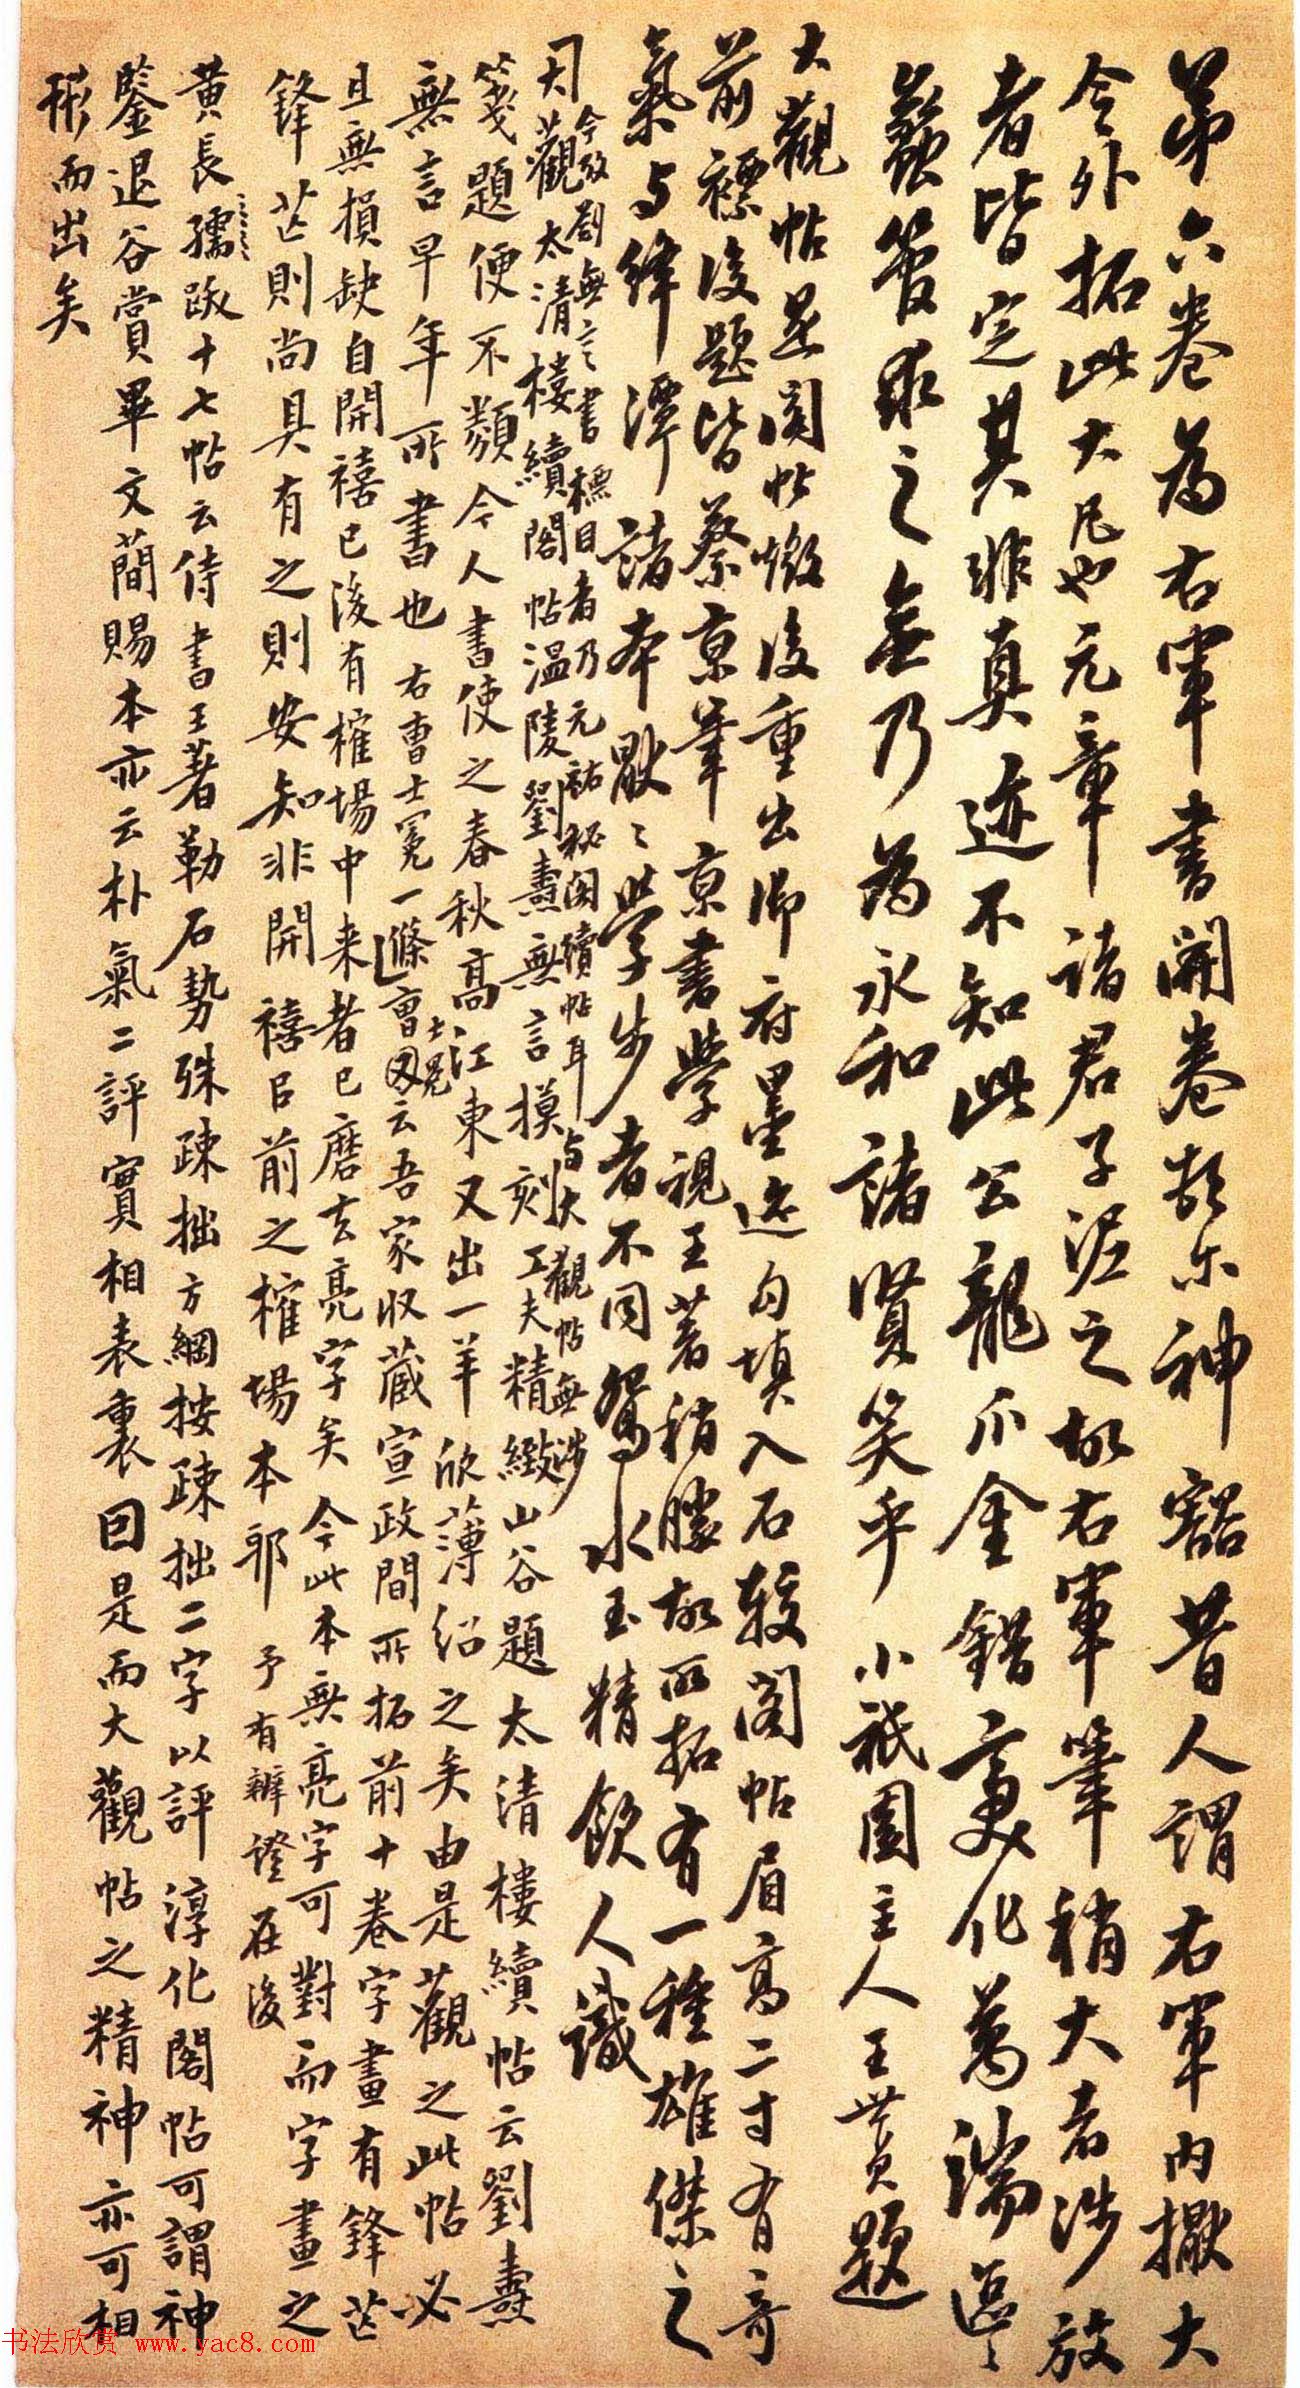 第六卷為右軍書開卷頓尔神豁昔人謂右軍內擫大
令外拓此大凡也元章諸君子泥之故右軍筆稍大者涉放
者皆定其非真迹不知此公龍爪金錯變化萬端區區
蠡管求之無乃為永和諸賢笑乎 小祇園主人王世貞題
大觀帖是閣帖燬後重出御府墨迹勾填入石較閣帖眉高二寸有奇
前標後題皆蔡京筆京書學視王著稍勝故所拓有一種雄傑之
氣与絳潭諸本戢戢學步者不同 鴛水玉精飲人識
今攷劉無言書標目者乃元祐秘閣續帖耳与大觀帖無涉
因大觀太清樓續閣帖溫陵劉燾無言摸刻工夫精緻山谷題太清樓續帖云劉燾
箋題便不類今人書使之春秋高江東又出一羊欣薄紹之矣由是觀之此帖必
無言早年所書也 右曹士冕一條 曹士冕又云吾家收藏宣政間所拓前十卷字畫有鋒芒
且無損缺自開禧已後有榷場中来者已磨去亮字矣 今此本無亮字可對而字畫之
鋒芒則尚具有之則安知非開禧㠯前之榷場本耶 予有辨證在後
黃長孺跋十七帖云侍書王著勒石勢殊疎拙方綱按疎拙二字以評淳化閣帖可謂神
鑒退谷賞畢文蕳賜本亦云朴氣二評實相表裏因是而大觀帖之精神亦可相
形而出矣
书法欣赏 www.yac8.com